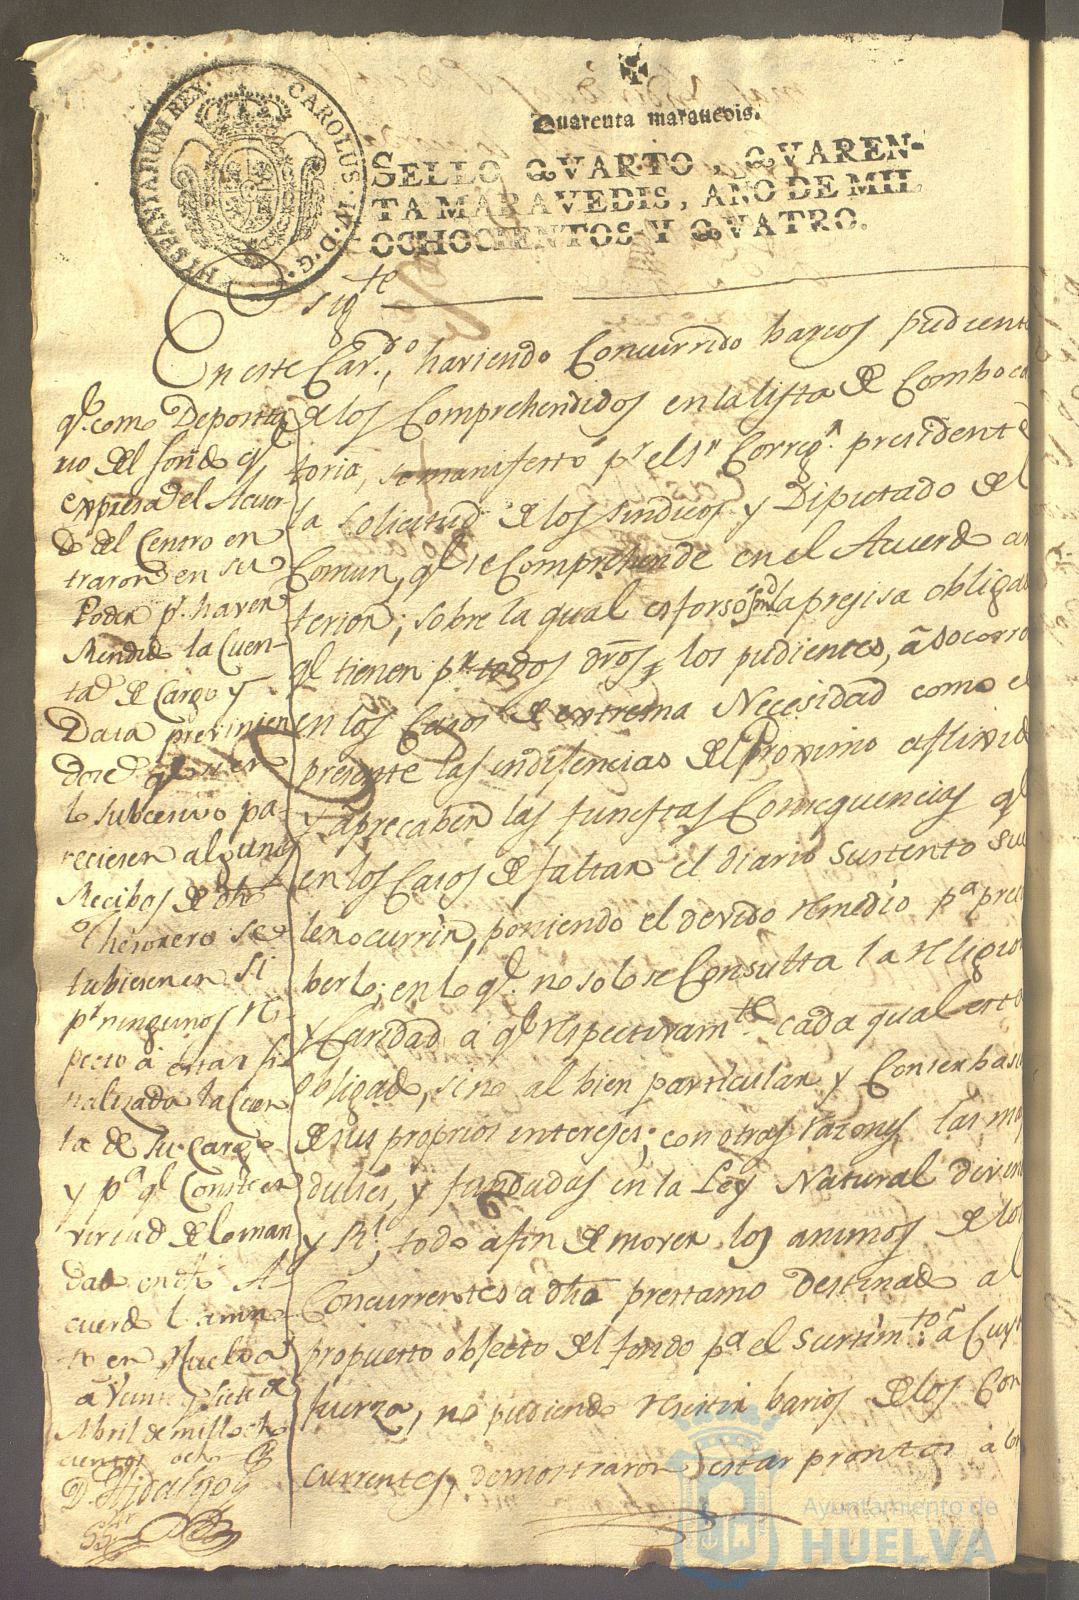 HISPANIARUM REX. CAROLUS. IV. D. G.
Quarenta marauedis.
SELLO QVARTO, QVAREN-
TA MARAVEDIS, AÑO DE MIL
OCHOCIENTOS Y QVATRO.
Sigte
En este Cavdo, haviendo Concurrido barios pudiente
de los Comprehendidos en la lista de Comboca
toria, se manifestó pr el Sr Corregr presidente
la solicitud de los sindicos y Diputado del
Comun, qe se Comprehende en el Acuerdo an
terior; sobre la qual esforsó la presisa obligac
qe tienen pr todos dros los pudientes, a socorro
en los Casos de extrema Necesidad como el
presente las indisencias del Proximo aflixid
y a precaber las funestas Consequencias qe
en los Casos de faltar el diario sustento sue
len ocurrir, poniendo el devido remedio pa prec
berlo; en lo qe no solo se Consulta la religion
y Caridad a qe respectivamte cada qual está
obligado, sino al bien particular y Conserbasn
de sus proprios intereses; con otras razones las mas
dulses, y fundadas en la Ley Natural divin
y Rl, todo a fin de mover los animos de los
Concurrentes a dho prestamo destinado al
propuesto objecto del fondo pa el surtimto a Cuya
fuerza, no pudiendo resistir barios de los Con
currentes, demostraron estar prontos a
qe como Deposita
rio del fondo qe
expresa del Acuer
do del Centro en
traron en su
Poder pr haver
Rendido la Cuen-
ta de Cargo y
Data previnien
dose qe
lo subcesivo pa-
recieren algunos
Recibos de dho
thesorero se
tubiesen en si
pr ningunos res-
pecto a estar fi
nalizada la Cuen
ta de su Cargo
y pa qe Conste en
virtud de lo man
dado en dho A-
cuerdo lo anno
to en Huelva
a Veinte y siete de
Abril de mil och
cientos ocho
D. Hidalgo
Ayuntamiento de
HUELVA